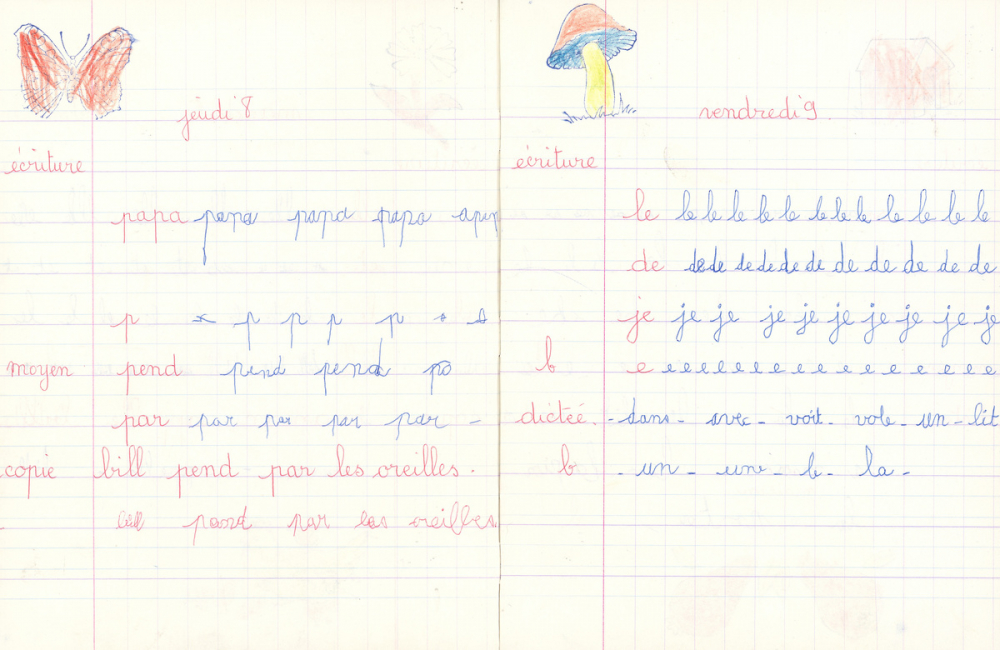 jeudi 8
écriture
papa papa papa papa
p p p p p
moyen pend pend pend
par par par par par -
copie bill pend par les oreilles.
bill pend par les oreilles.
vendredi 9.
écriture
le le le le le le le le le le le le le
de de de de de de de de de de de de
je je je je je je je je je je je
b e e e e e e e e e e e e e e e
dictée. - dans - avec - voit - vole - un - lit
b - un - une - le - la -